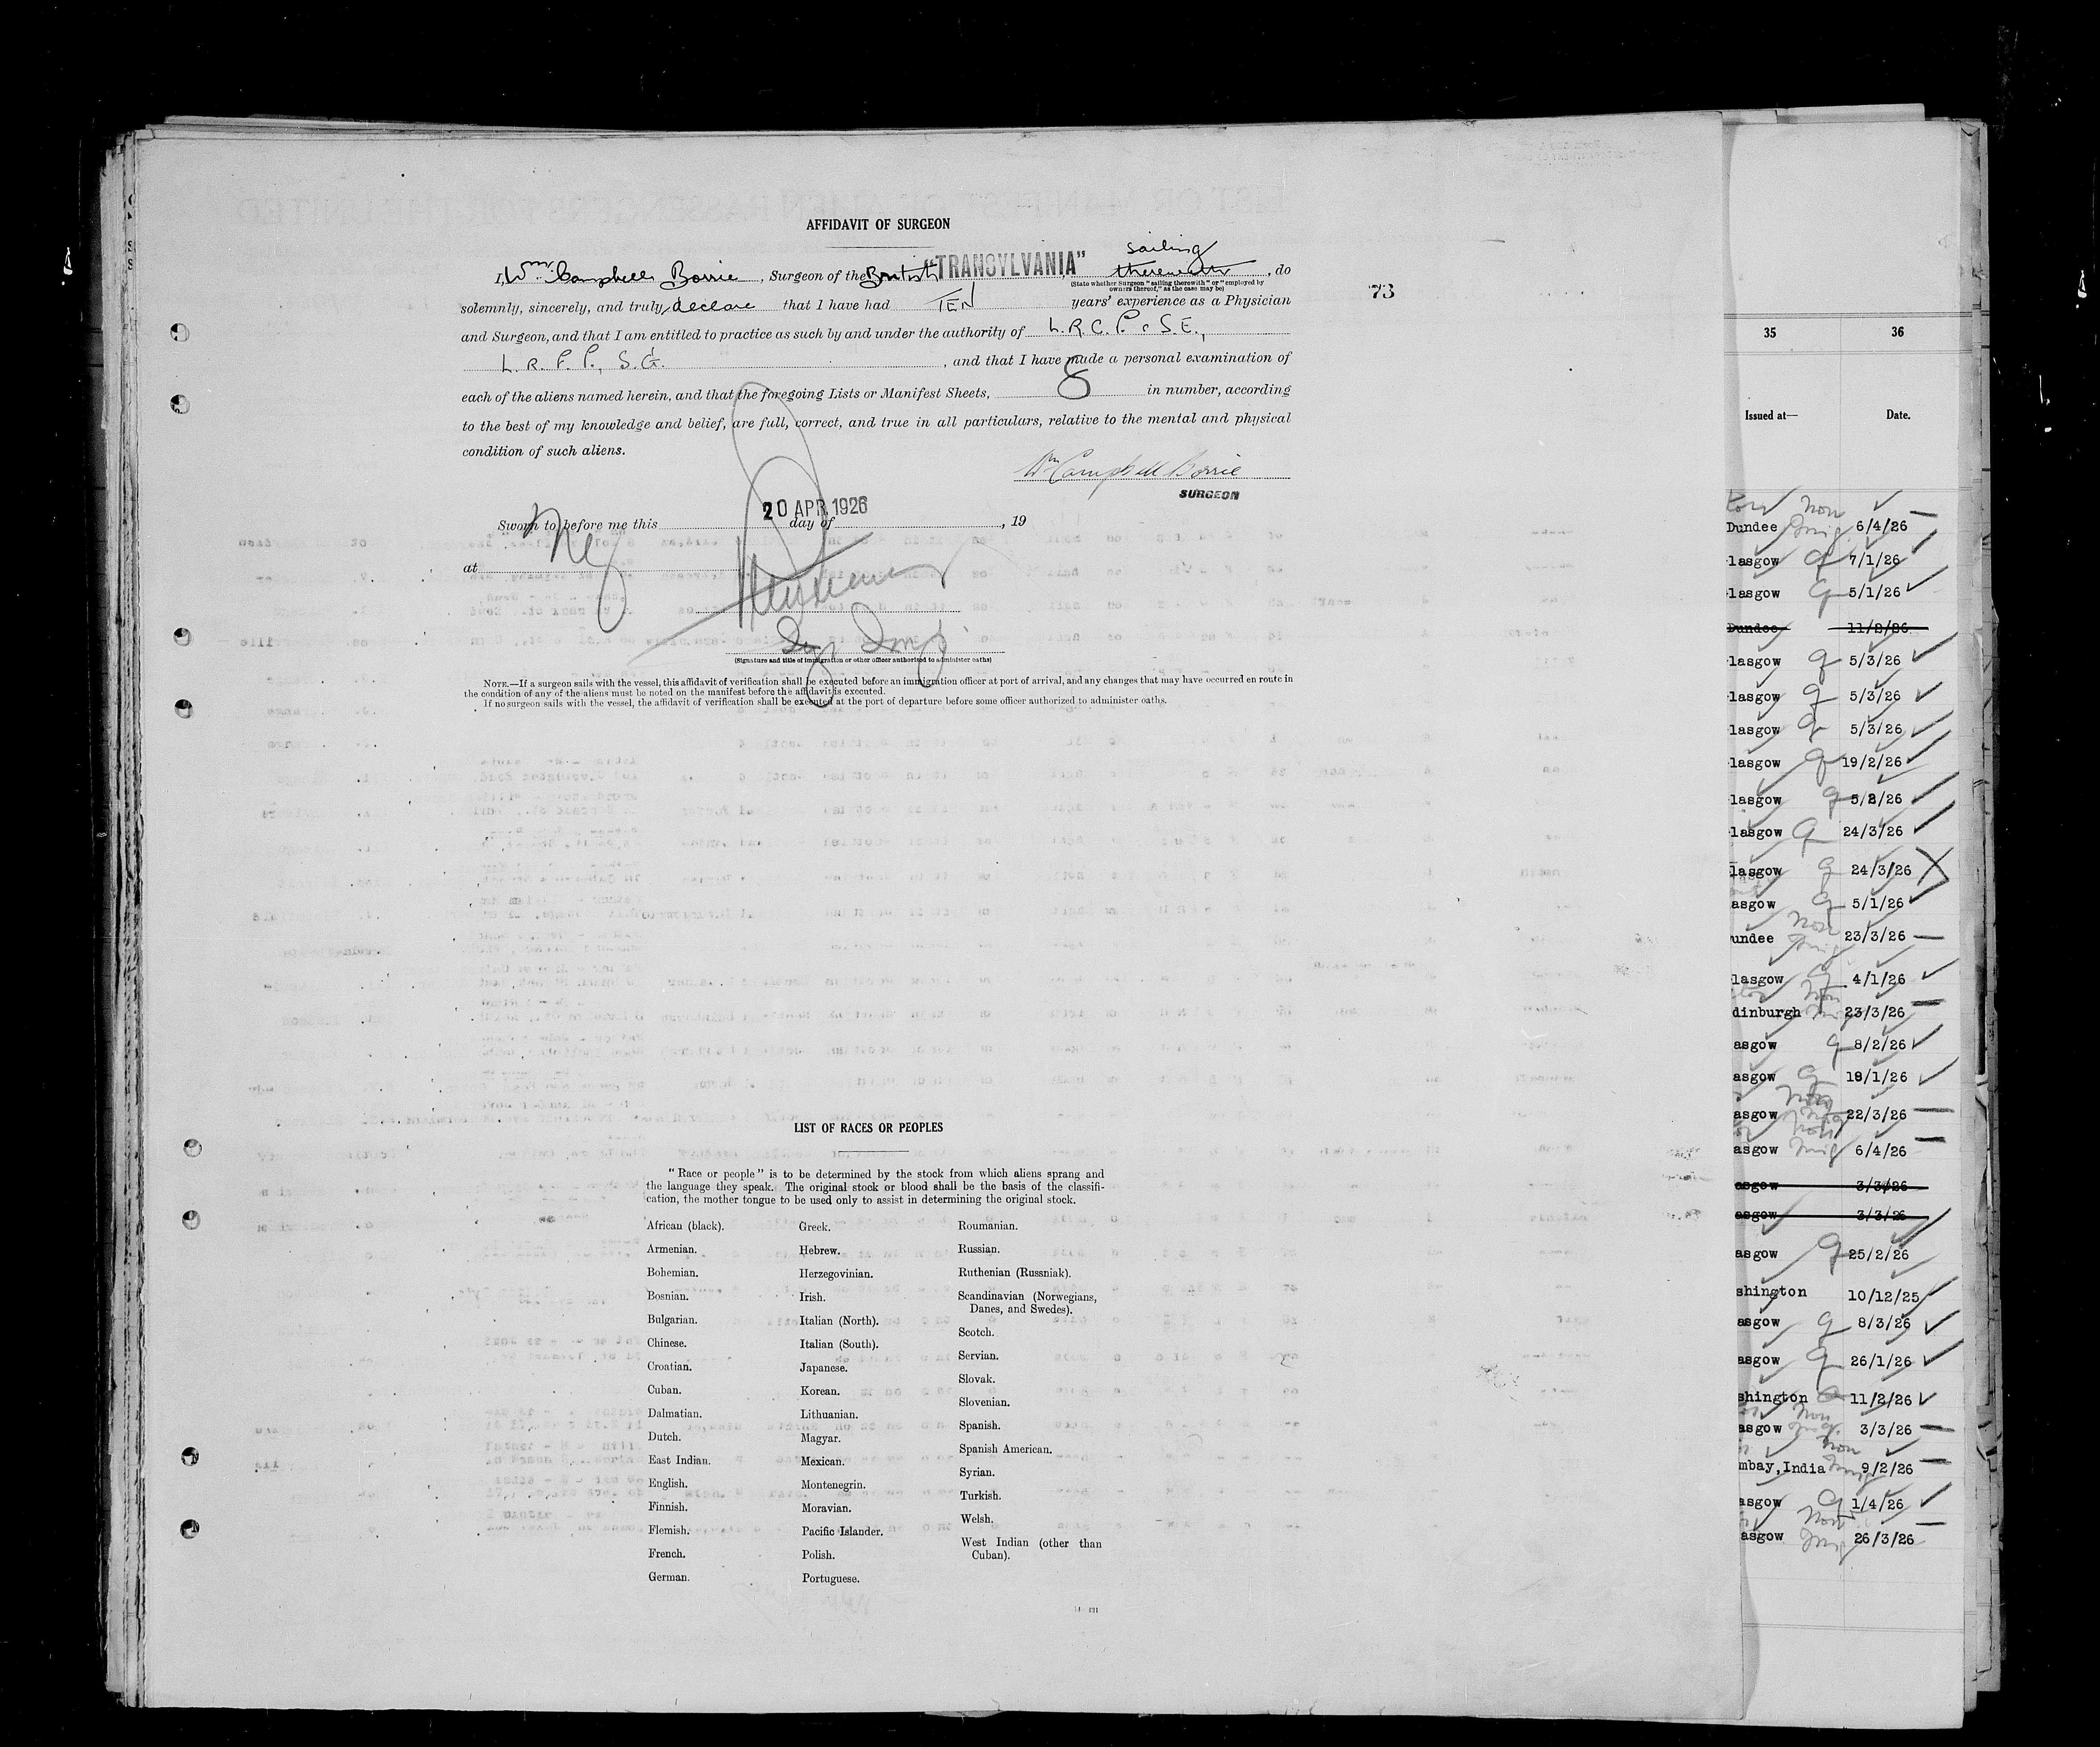 AFFIDAVIT OF SURGEON
sailing
I, Wm. Campbell Borrie, Surgeon of the British "TRANSYLVANIA" therewith, do
(State whether Surgeon "sailing therewith" or "employed by
owners thereof," as the case may be)
solemnly, sincerely, and truly, declare that I have had TEN years' experience as a Physician
and Surgeon, and that I am entitled to practice as such by and under the authority of L.R.C.P. & S.E.,
L.R.F.P., S.G. , and that I have made a personal examination of
each of the aliens named herein, and that the foregoing Lists or Manifest Sheets, 8 in number, according
to the best of my knowledge and belief, are full, correct, and true in all particulars, relative to the mental and physical
condition of such aliens.
Wm Campbell Borrie
SURGEON
20 APR 1926
Sworn to before me this day of , 19
at NY
(Signature and title of immigration or other officer authorized to administer oaths)
NOTE.—If a surgeon sails with the vessel, this affidavit of verification shall be executed before an immigration officer at port of arrival, and any changes that may have occurred en route in
the condition of any of the aliens must be noted on the manifest before the affidavit is executed.
If no surgeon sails with the vessel, the affidavit of verification shall be executed at the port of departure before some officer authorized to administer oaths.
73
LIST OF RACES OR PEOPLES
"Race or people" is to be determined by the stock from which aliens sprang and
the language they speak. The original stock or blood shall be the basis of the classifi-
cation, the mother tongue to be used only to assist in determining the original stock.
African (black).
Armenian.
Bohemian.
Bosnian.
Bulgarian.
Chinese.
Croatian.
Cuban.
Dalmatian.
Dutch.
East Indian.
English.
Finnish.
Flemish.
French.
German.
Greek.
Hebrew.
Herzegovinian.
Irish.
Italian (North).
Italian (South).
Japanese.
Korean.
Lithuanian.
Magyar.
Mexican.
Montenegrin.
Moravian.
Pacific Islander.
Polish.
Portuguese.
Roumanian.
Russian.
Ruthenian (Russniak).
Scandinavian (Norwegians,
Danes, and Swedes).
Scotch.
Servian.
Slovak.
Slovenian.
Spanish.
Spanish American.
Syrian.
Turkish.
Welsh.
West Indian (other than
Cuban).
35 36
Issued at— Date.
Dundee 6/4/26
lasgow 7/1/26
lasgow 5/1/26
Dundee 11/2/26
lasgow 5/3/26
lasgow 5/3/26
lasgow 5/3/26
lasgow 19/2/26
lasgow 5/2/26
lasgow 24/3/26
lasgow 24/3/26
asgow 5/1/26
undee 23/3/26
lasgow 4/1/26
dinburgh 23/3/26
asgow 8/2/26
asgow 18/1/26
asgow 22/3/26
asgow 6/4/26
asgow 3/3/26
asgow 3/3/26
asgow 25/2/26
shington 10/12/25
asgow 8/3/26
asgow 26/1/26
shington 11/2/26
asgow 3/3/26
mbay, India 9/2/26
asgow 1/4/26
asgow 26/3/26